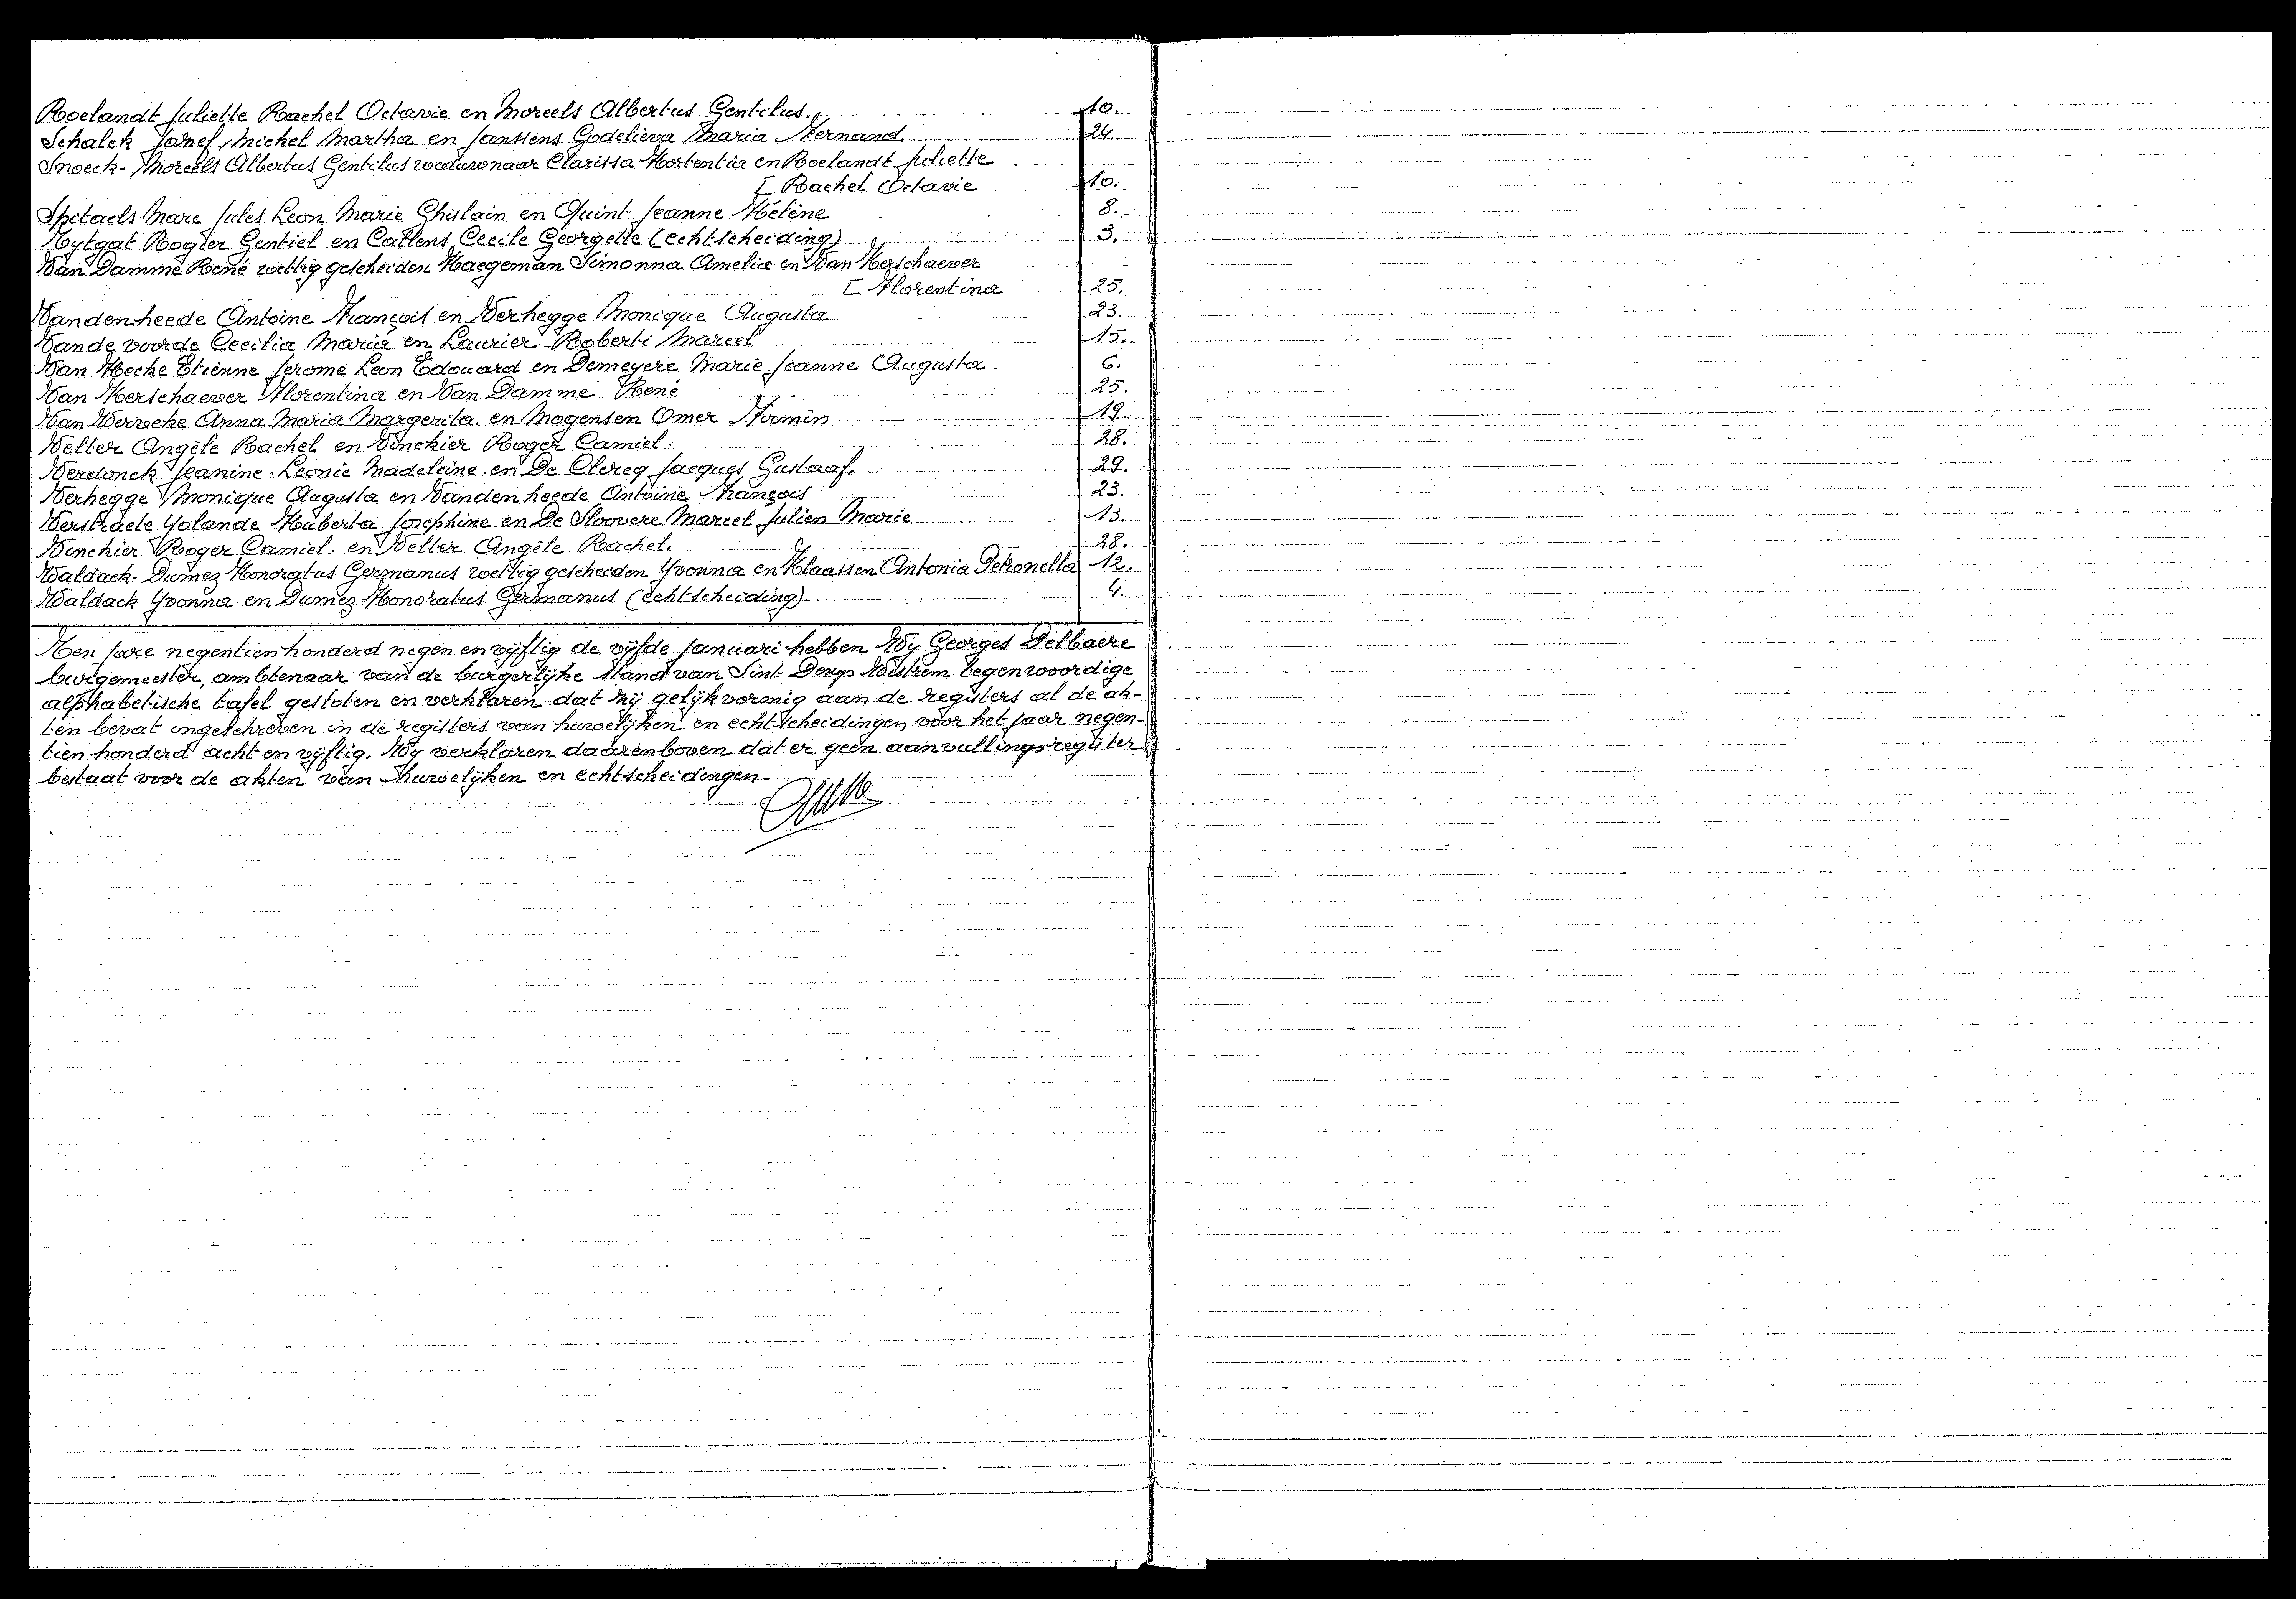 Roelandt Juliette Rachel Octavie en Moreels Albertus Gentilus. 10.
Schalck Jozef Michel Martha en Janssens Godelieva Maria Fernand. 24.
Snoeck - Moreels Albertus Gentilus weduwnaar Clarissa Hortentia en Roelandt Juliette
[ Rachel Octavie 10.
Spitaels Marc Jules Leon Marie Ghislain en Quint Jeanne Hélène 8.
Tytgat Rogier Gentiel en Callens Cecile Georgette (echtscheiding) 3.
Van Damme René wettig gescheiden Haegeman Simonna Amelia en Van Herschaever
[ Florentina 25.
Vandenheede Antoine François en Verhegge Monique Augusta 23.
Vande voorde Cecilia Maria en Laurier Robert Marcel 15.
Van Hecke Etienne Jerome Leon Edouard en Demeyere Marie Jeanne Augusta 6.
Van Herschaever Florentina en Van Damme René 25.
Van Wervecke Anna Maria Margerita en Mogensen Omer Firmin 19.
Velter Angèle Rachel en Vinckier Roger Camiel. 28.
Verdonck Jeanine Leonie Madeleine en De Clercq Jacques Gustaaf. 29.
Verhegge Monique Augusta en Vandenheede Antoine François 23.
Verstraete Yolande Huberta Josephine en De Stoovere Marcel Julien Marie 13.
Vinckier Roger Camiel en Velter Angèle Rachel. 28.
Waldack - Dumez Honoratus Germanus wettig gescheiden Yvonna en Klaassen Antonia Petronella 12.
Waldack Yvonna en Dumez Honoratus Germanus (echtscheiding) 4.
Ten jare negentienhonderd negen en vijftig de vijfde januari hebben Wy Georges Delbaere
burgemeester, ambtenaar van de burgerlijke stand van Sint Denys Westrem tegenwoordige
alphabetische tafel gesloten en verklaren dat zij gelijkvormig aan de registers al de ak-
ten bevat ingeschreven in de registers van huwelijken en echtscheidingen voor het jaar negen-
tien honderd acht en vijftig. Wy verklaren daarenboven dat er geen aanvullingsregister
bestaat voor de akten van huwelijken en echtscheidingen -